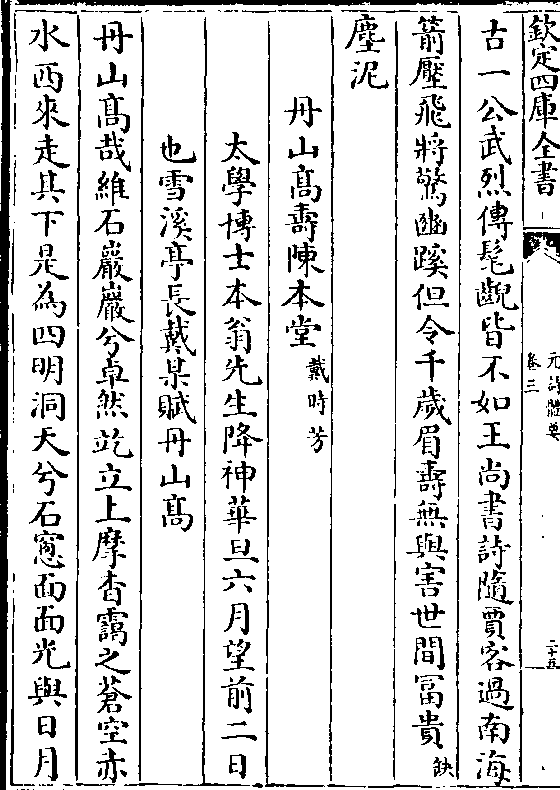 欽定四庫全書
元詩體要
卷三
二十五
古一公武烈傳髦齯皆不如王尚書詩隨賈客過南海
箭壓飛將驚幽蹊但令千歲眉壽無與害世間冨貴缺
塵泥
丹山髙壽陳本堂戴時芳
太學博士本翁先生降神華旦六月望前二日
也雪溪亭長戴某賦丹山髙
丹山髙哉維石巖巖兮卓然屹立上摩杳靄之蒼空赤
水西來走其下是為四明洞天兮石窻面面光與日月